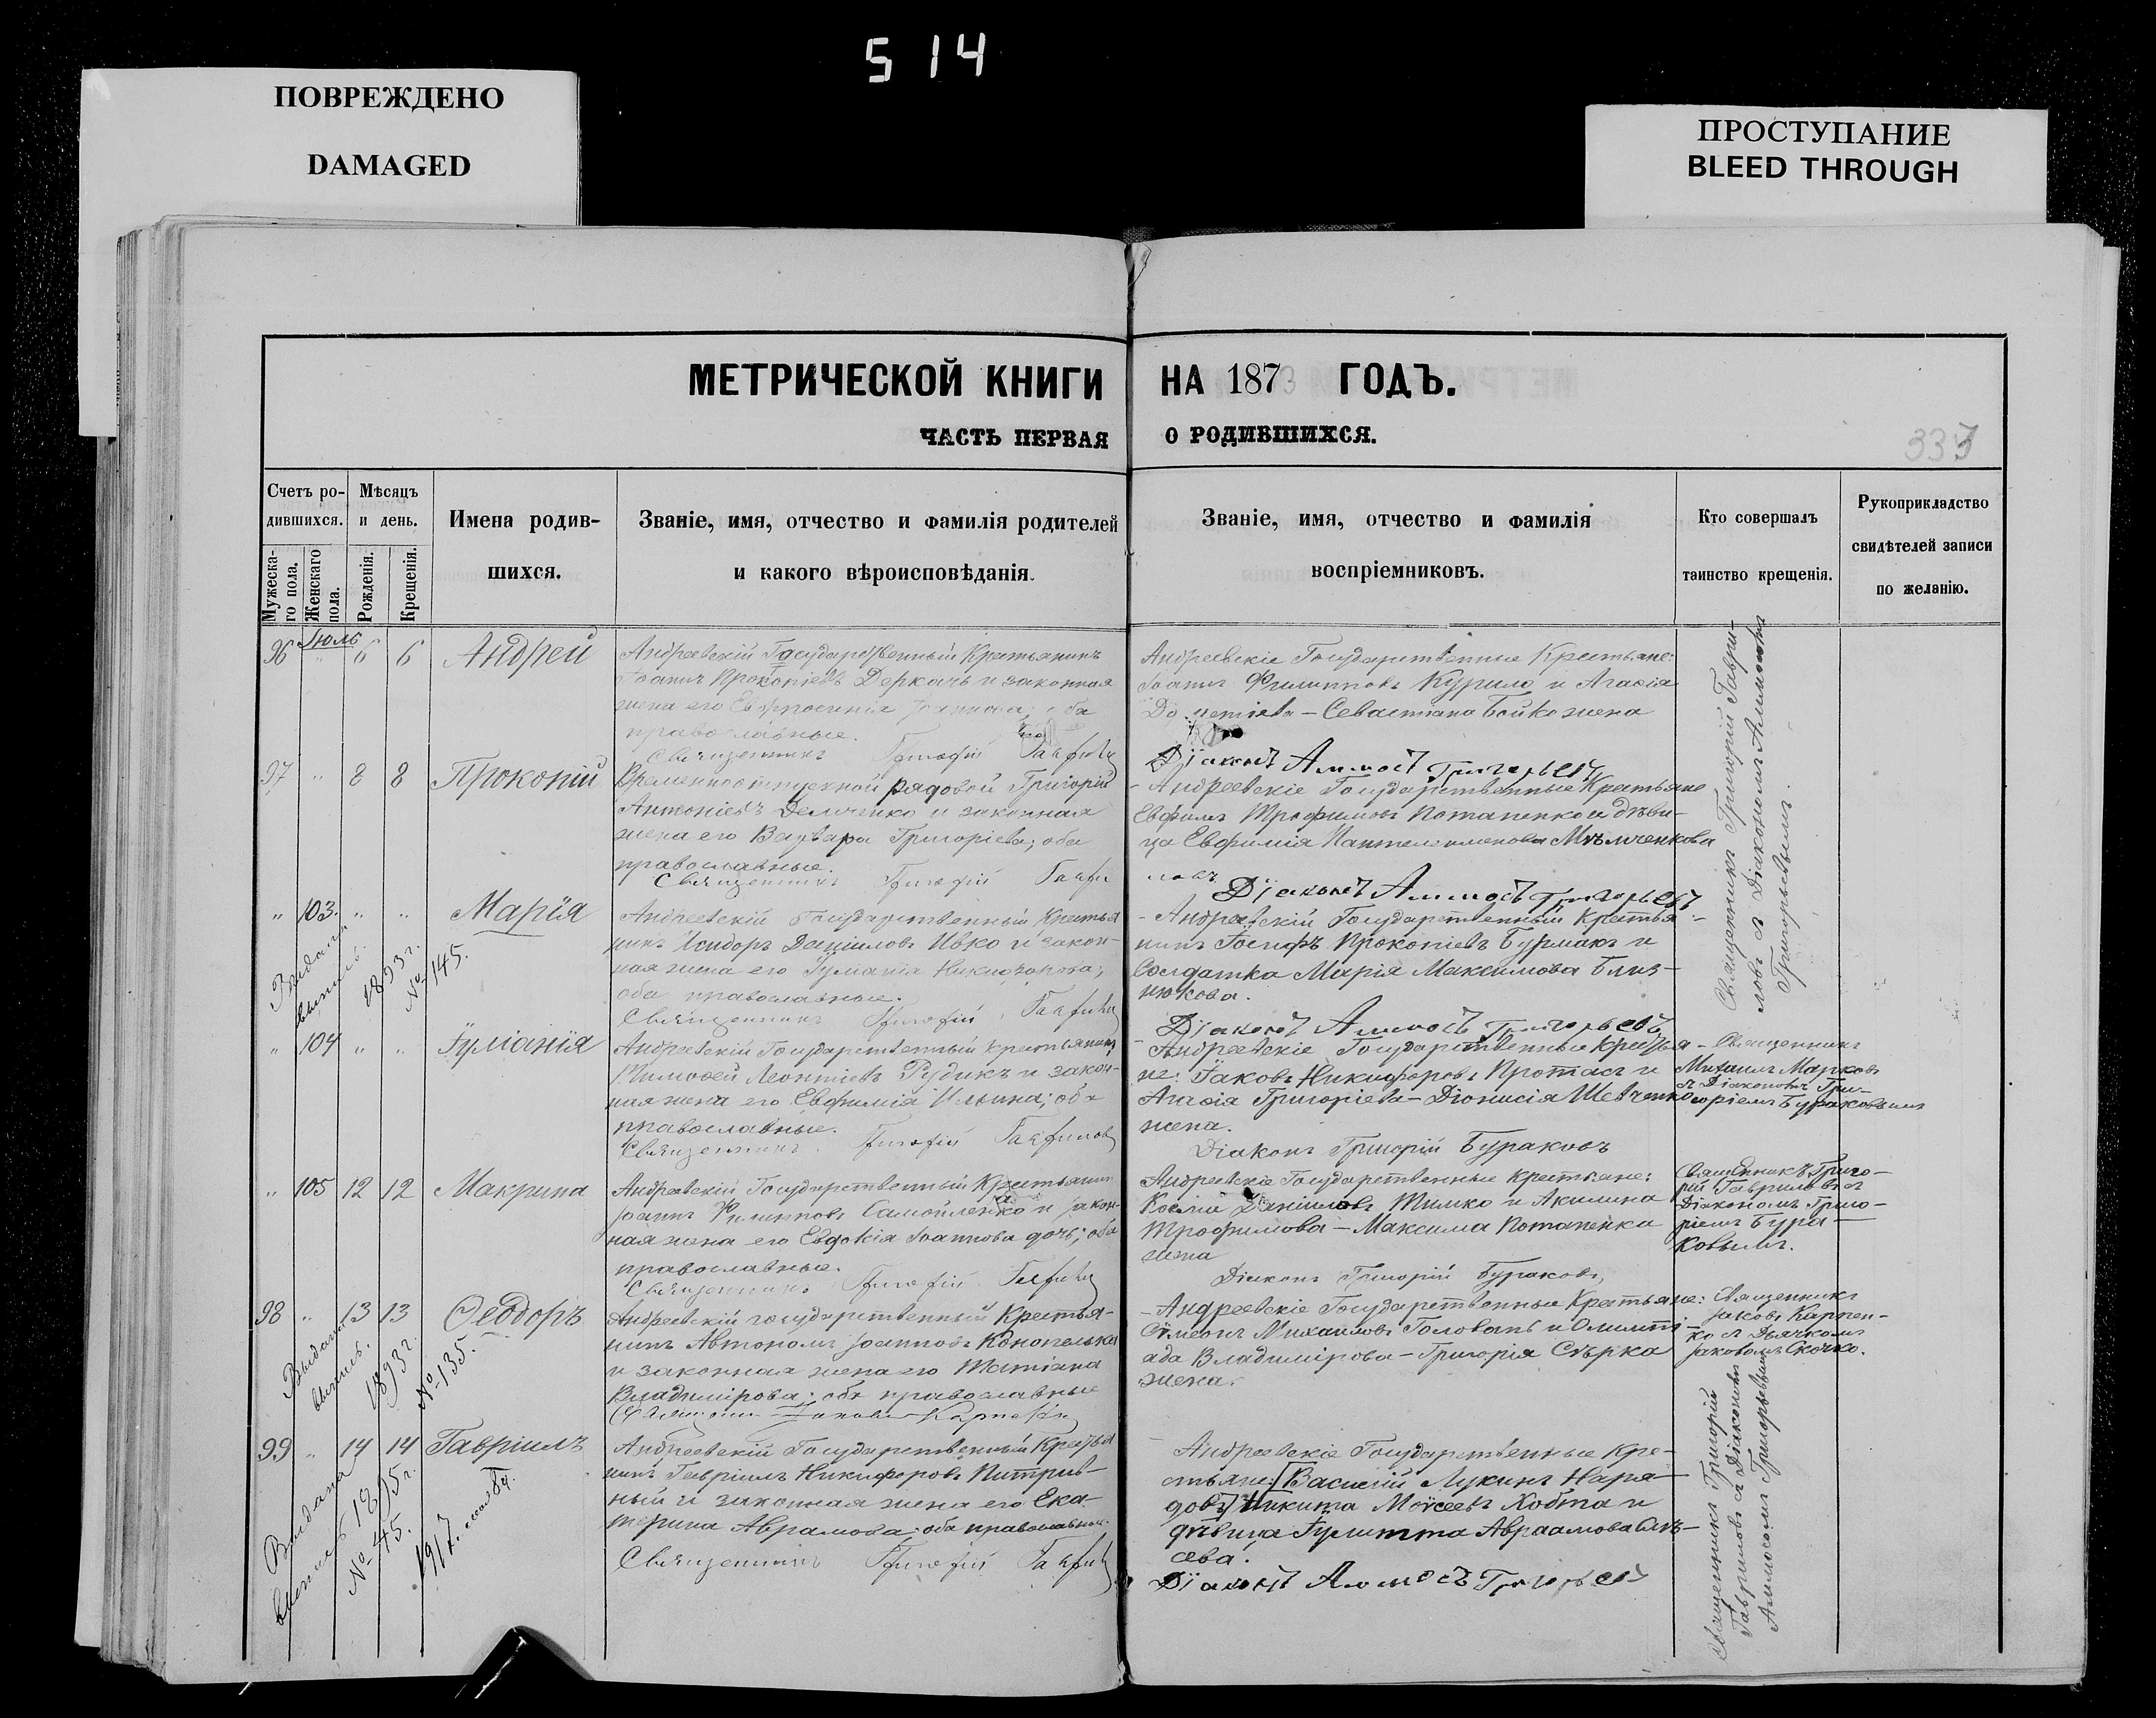 514
ПОВРЕЖДЕНО
DAMAGED
ПРОСТУПАНИЕ
BLEED THROUGH
МЕТРИЧЕСКОЙ КНИГИ НА 1873 ГОДЪ.
ЧАСТЬ ПЕРВАЯ О РОДИВШИХСЯ.
Счетъ ро-
дившихся.
Мужеска-
го пола.
Женскаго
пола.
Мѣсяцъ
и день.
Рожденія.
Крещенія.
Имена родив-
шихся.
Званіе, имя, отчество и фамилія родителей
и какого вѣроисповѣданія.
Званіе, имя, отчество и фамилія
воспріемниковъ.
Кто совершалъ
таинство крещенія.
Рукоприкладство
свидѣтелей записи
по желанію.
Іюль
96 " 6 6 Андрей
Андреевскій Государственный Крестьянинъ
Іоаннъ Прокопіевъ Деркачъ и законная
жена его Евфросинія Іоаннова; оба
православные.
Священникъ Григорій
Андреевскіе Государственные Крестьяне:
Іоаннъ Филипповъ Курило и Агафія
Севастіана Бойко жена
Діаконъ Аммосъ Григорьевъ
Священникъ Григорій Гаври-
ловъ съ Діакономъ Аммосомъ
Григорьевымъ.
97 " 8 8 Прокопій
Временноотпускной рядовой Григорій
Антоніевъ Демченко и законная
жена его Варвара Григоріева; оба
православные.
Священникъ Григорій
Андреевскіе Государственные Крестьяне
Евфимъ Трофимовъ Потапенко и дѣви-
ца Евфимія Пантелеимонова Мѣльченкова
Діаконъ Аммосъ Григорьевъ
" 103. " " Марія
Выдана
выпись.
1893 г.
№ 145.
Андреевскій Государственный Крестья
нинъ Исидоръ Даніиловъ Ивко и закон-
ная жена его Іуліанія Никифорова;
оба православные.
Священникъ Григорій
Андреевскій Государственный Крестья-
нинъ Іосифъ Прокопіевъ Бурмакъ и
Солдатка Марія Максимова Близ-
нюкова.
Діаконъ Аммосъ Григорьевъ
" 104 " " Іуліанія
Андреевскій Государственный крестьянинъ
Тимофей Леонтіевъ Рудикъ и закон-
ная жена его Евфимія Ильина; оба
православные.
Священникъ Григорій Гавриловъ
Андреевскіе Государственные Крестья-
не: Іаковъ Никифоровъ Протасъ и
Агафія Григоріева - Діонисія Шевченко
жена.
Діаконъ Григорій Бураковъ
Священникъ
Михаилъ Марковъ
съ Діакономъ Гри-
горіемъ Бураковымъ
" 105 12 12 Макрина
Андреевскій Государственный Крестьянинъ
Іоаннъ Филипповъ Самойленко и закон-
ная жена его Евдокія Іоаннова дочь; оба
православные.
Священникъ Григорій
Андреевскіе Государственные Крестьяне:
Косма Даніиловъ Тимко и Акилина
Трофимова - Максима Потапенка
жена
Діаконъ Григорій Бураковъ
Священникъ Григо-
рій Гавриловъ съ
Діакономъ Григо-
ріемъ Бура-
ковымъ.
98 " 13 13 Ѳеодоръ
Выдана
выпись.
1893 г.
№ 135.
Андреевскій государственный Крестья-
нинъ Автономъ Іоанновъ Конопелька
и законная жена его Татіана
Владимірова; оба православные
Андреевскіе Государственные Крестьяне:
Сѵмеонъ Михаиловъ Головань и Олимпі-
ада Владимірова - Григорія Сѣрка
жена.
Священникъ
Іаковъ Карпен-
ко съ Дьячкомъ
Іаковомъ Скочко.
99 " 14 14 Гавріилъ
Выдана
выпись 1895 г.
№ 45.
1917.
Андреевскій Государственный Крестья
нинъ Гавріилъ Никифоровъ Питрив-
ный и законная жена его Ека-
терина Аврамова; оба православные
Священникъ Григорій
Андреевскіе Государственные Кре-
стьяне: [Василій Лукинъ Наря-
довъ] Никита Моѵсеевъ Ковта и
дѣвица Іулитта Авраамова Слѣ-
сева.
Діаконъ Аммосъ Григорьевъ
Священникъ Григорій
Гавриловъ съ Діакономъ
Аммосомъ Григорьевымъ